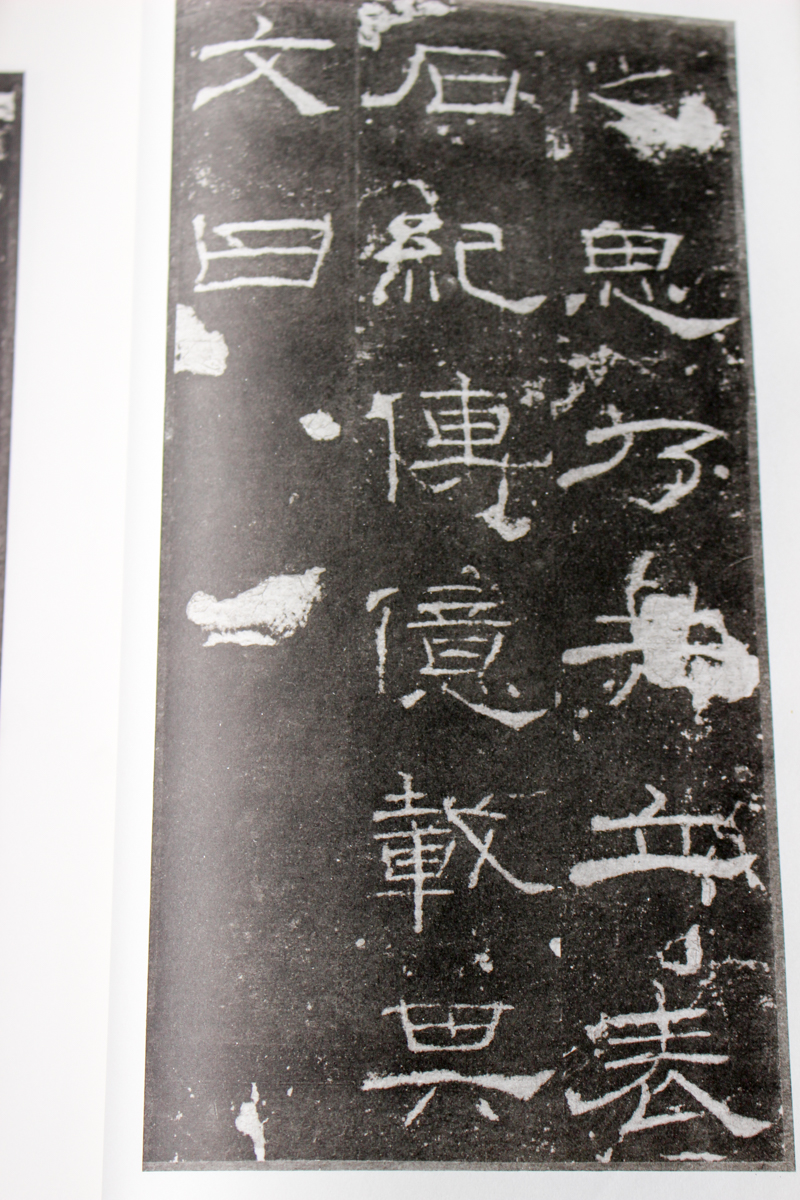 之思乃共立表
石紀傳億載其
文曰